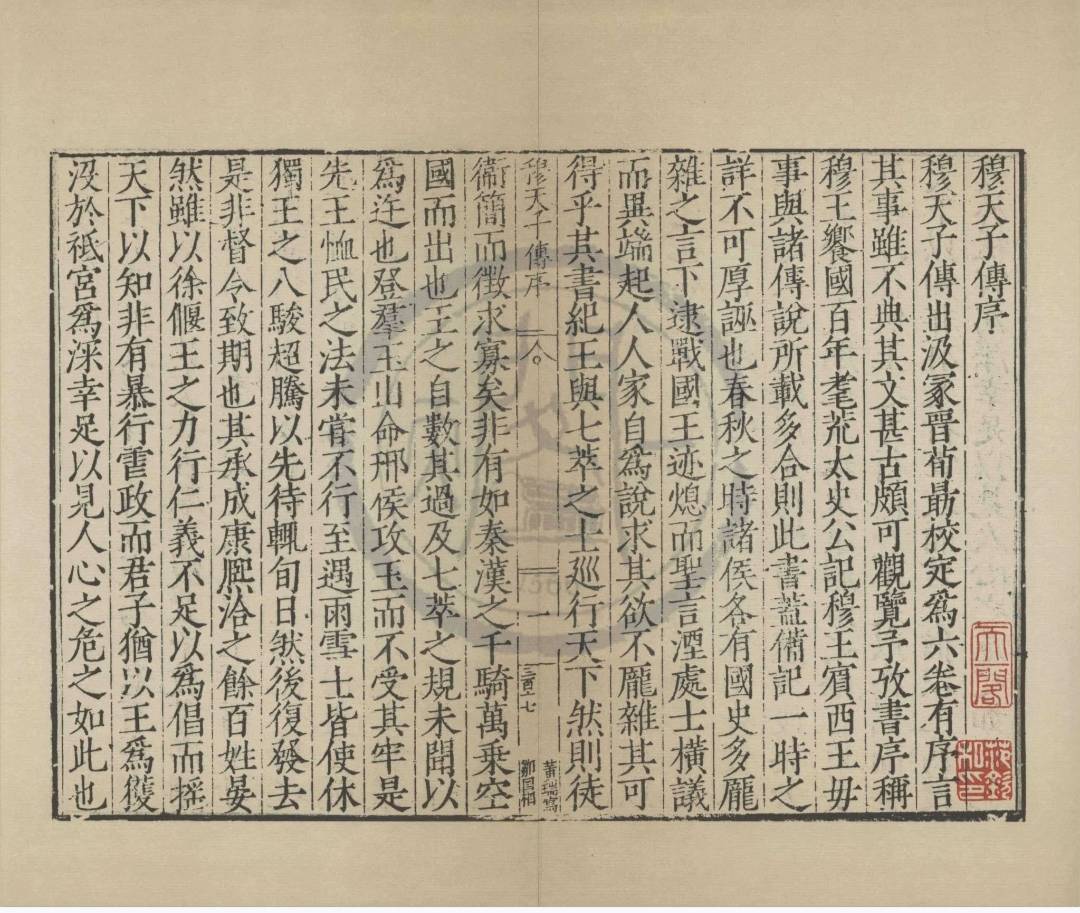 穆天子傳序
穆天子傳出汲冡晉荀朂校定爲六卷有序言
其事雖不典其文甚古頗可觀覽予攷書序稱
穆王饗國百年耄荒太史公記穆王賔西王毋
事與諸傳說所載多合則此書蓋備記一時之
詳不可厚誣也春秋之時諸侯各有國史多龎
雜之言下逮戰國王迹熄而聖言湮處士橫議
而異端起人人家自爲說求其欲不龎雜其可
得乎其書紀王與七萃之士廵行天下然則徒
穆天子傳序
一
三百十七
黃瑞寫
衞簡而徴求寡矣非有如秦漢之千騎萬乗空
國而出也王之自數其過及七萃之規未聞以
爲迕也登羣玉山命邢侯攻玉而不受其牢是
先王恤民之法未嘗不行至遇雨雪士皆使休
獨王之八駿超騰以先待輒旬日然後復發去
是非督令致期也其承成康熈洽之餘百姓晏
然雖以徐偃王之力行仁義不足以爲倡而摇
天下以知非有暴行雪政而君子猶以王爲獲
沒於祗宮爲深幸足以見人心之危之如此也